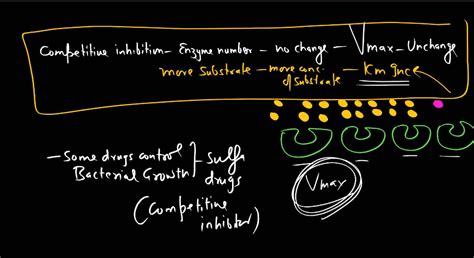 Competitive inhibition - Enzyme number - no change - Vmax - Unchange
more Substrate - more conc. of substrate - Km ↑nce
- Some drugs control Bacterial Growth } - Sulfa drugs
(Competitive inhibitor)
Vmax